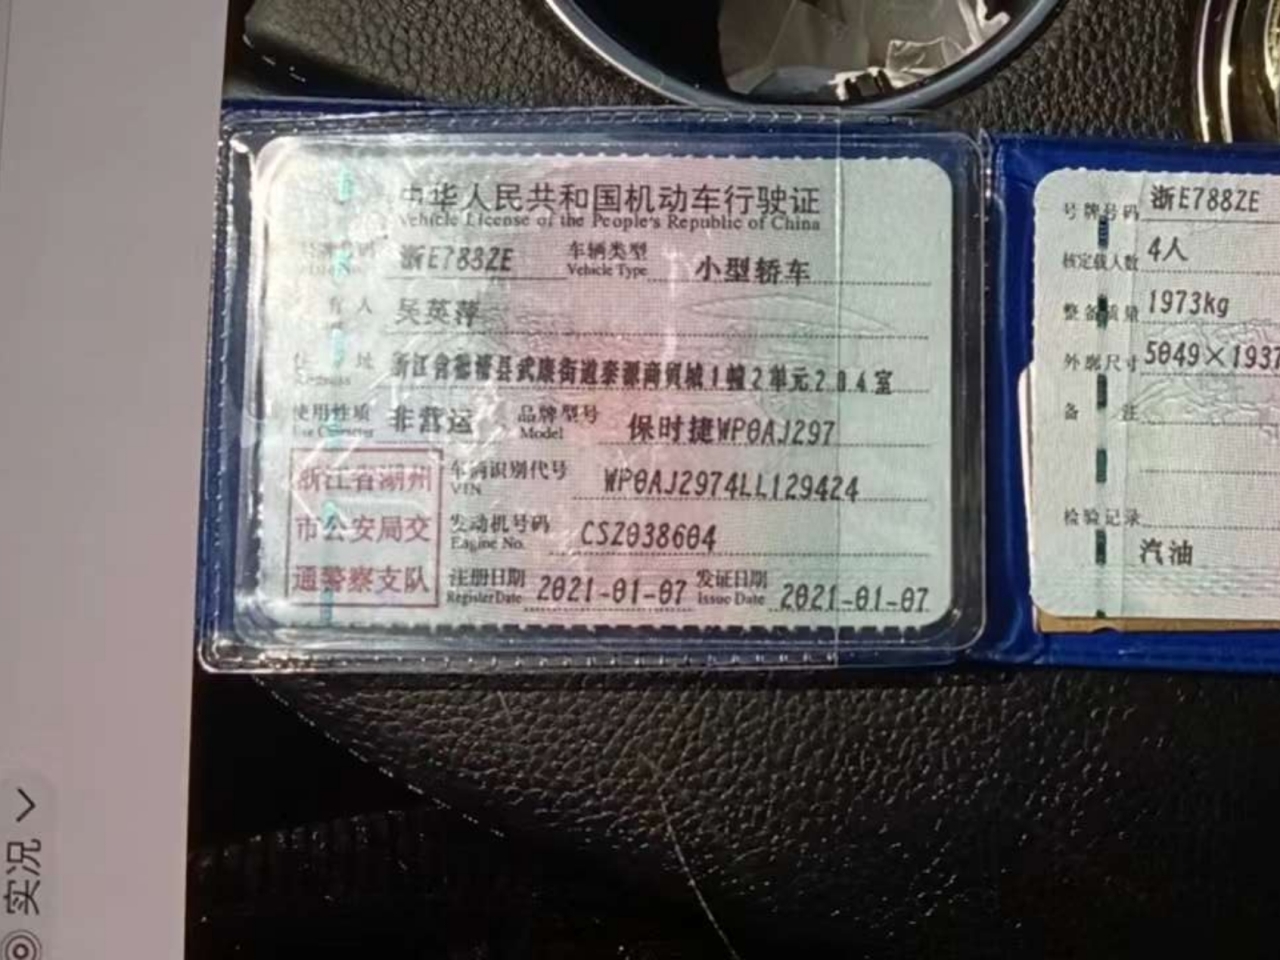 中华人民共和国机动车行驶证
Vehicle License of the People's Republic of China
号牌号码 浙E788ZE 车辆类型 小型轿车
Vehicle Type
人 吴英萍
住 址 浙江省 县武康街道泰源商贸城1幢2单元204室
使用性质 非营运 品牌型号 保时捷WP0AJ297
Use Character Model
浙江省湖州
市公安局交
通警察支队
车辆识别代号 WP0AJ2974LL129424
VIN
发动机号码 CSZ038604
Engine No.
注册日期 2021-01-07 发证日期 2021-01-07
Register Date Issue Date
号牌号码 浙E788ZE
核定载人数 4人
整备质量 1973kg
外廓尺寸 5049×1937
备 注
检验记录
汽油
实况